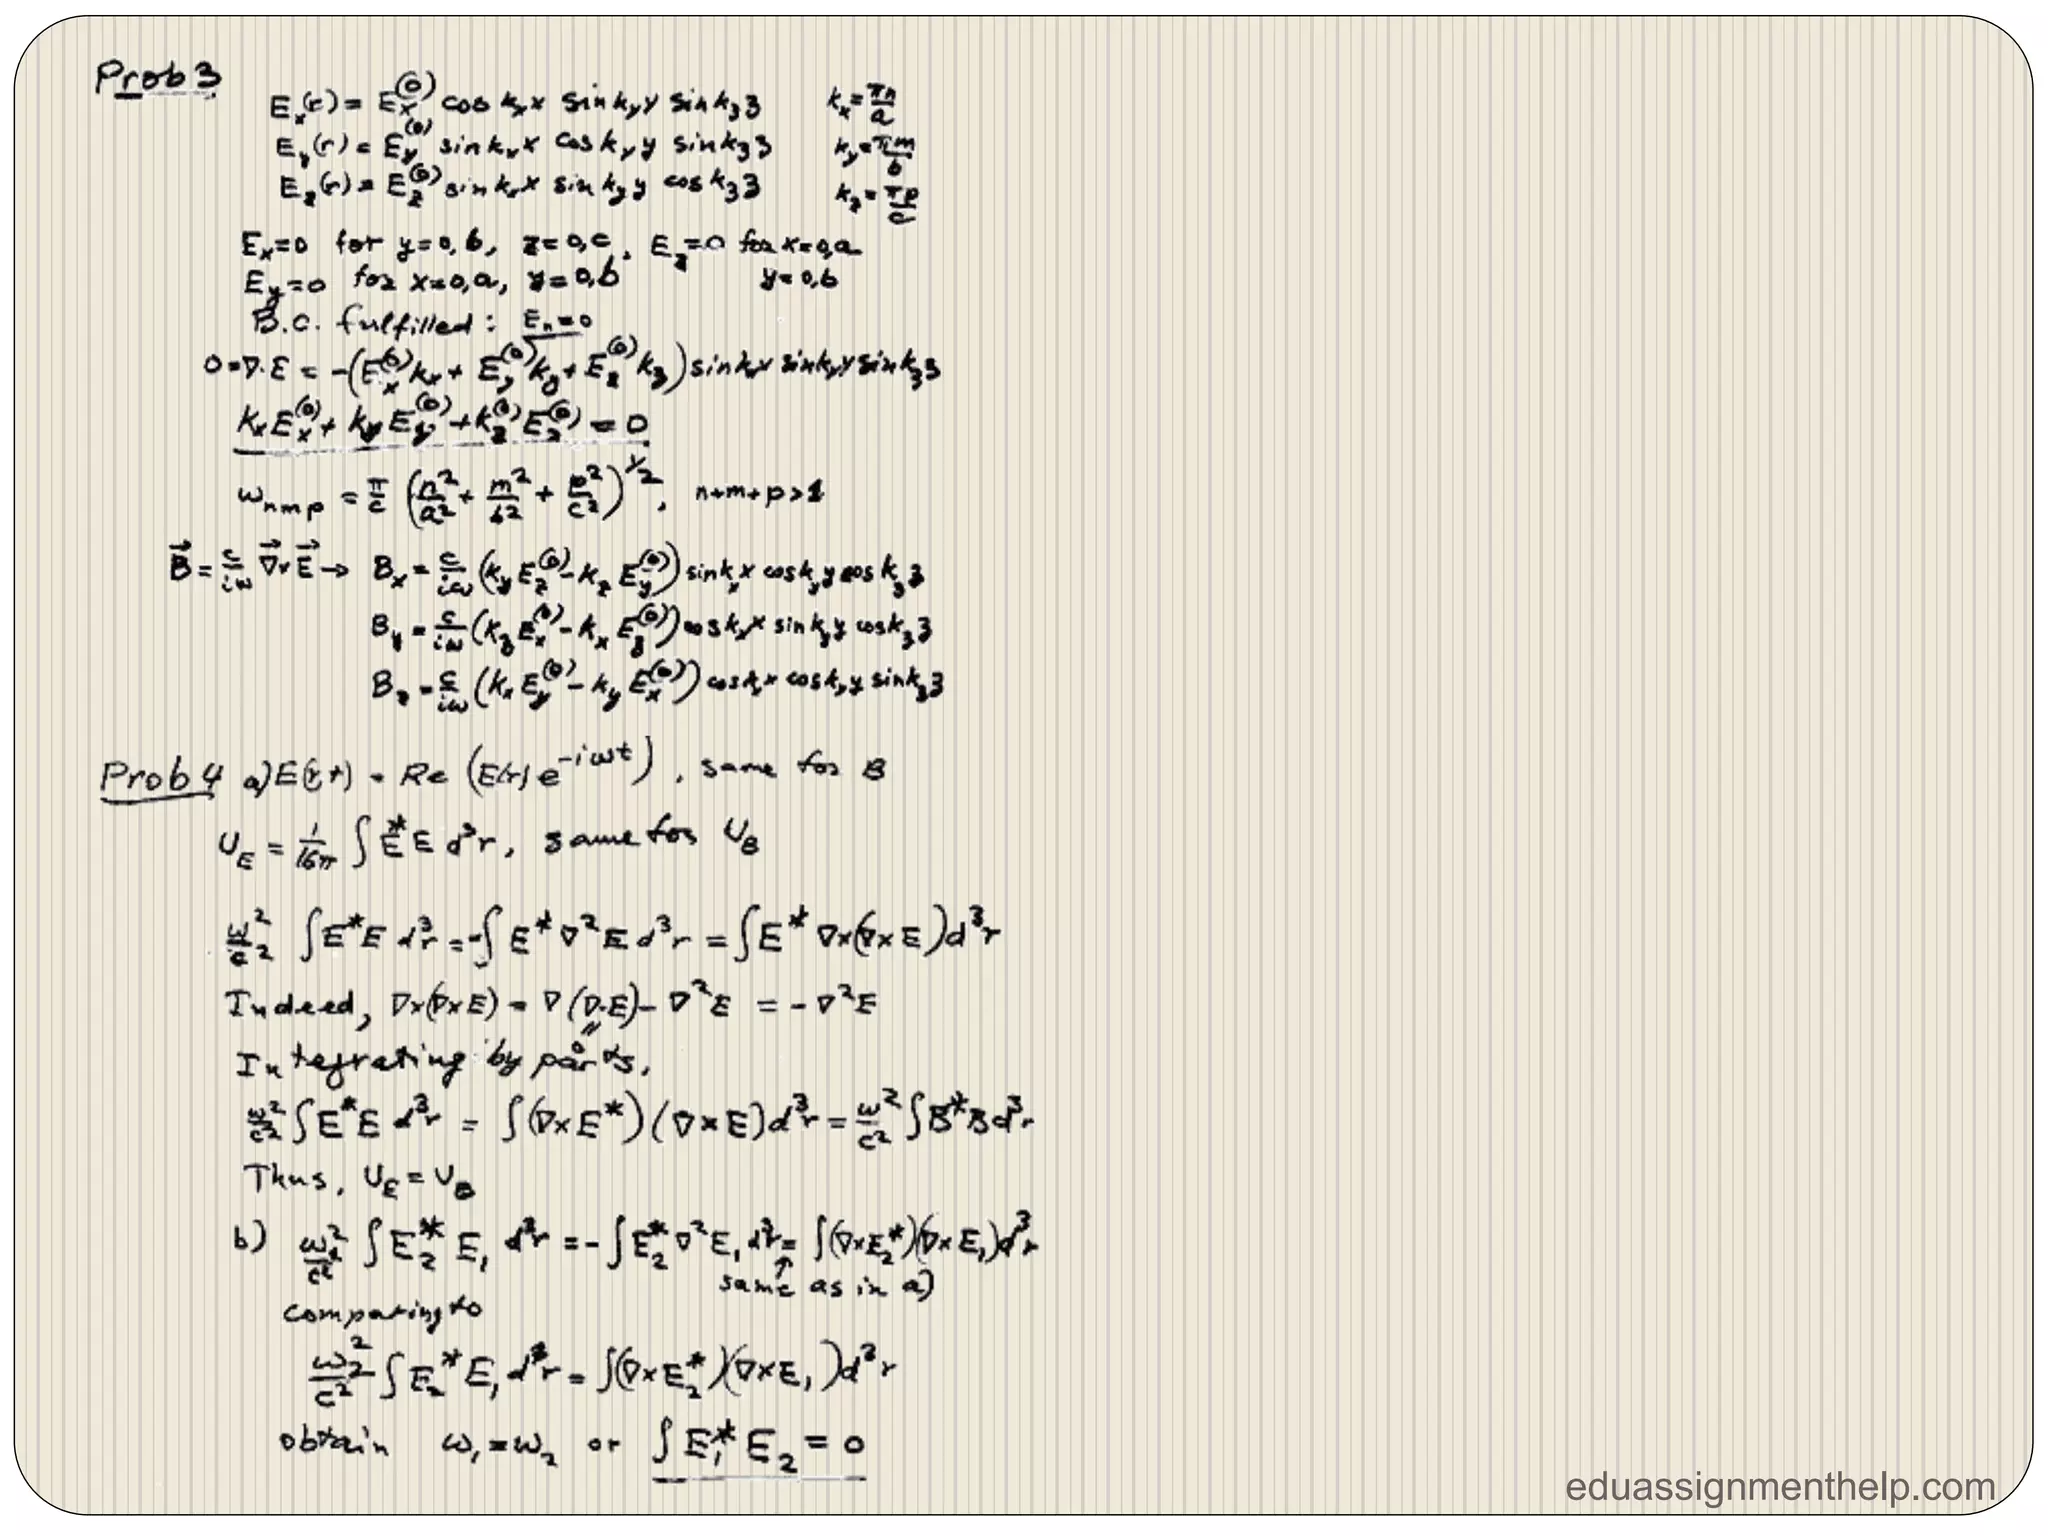 Prob 3
E_x(r) = E_x^(0) cos k_x x sin k_y y sin k_z z    k_x = πn/a
E_y(r) = E_y^(0) sin k_x x cos k_y y sin k_z z    k_y = πm/b
E_z(r) = E_z^(0) sin k_x x sin k_y y cos k_z z    k_z = πp/c
E_x=0 for y=0,b, z=0,c, E_z=0 for x=0,a
E_y=0 for x=0,a, y=0,b    y=0,b
B.C. fulfilled: E_n=0
0=∇·E = -(E_x^(0) k_x + E_y^(0) k_y + E_z^(0) k_z) sin k_x x sin k_y y sin k_z z
k_x E_x^(0) + k_y E_y^(0) + k_z^(0) E_z^(0) = 0
ω_nmp = π/c (n²/a² + m²/b² + p²/c²)^1/2, n+m+p>1
B⃗ = c/iω ∇⃗×E⃗ → B_x = c/iω (k_y E_z^(0) - k_z E_y^(0)) sin k_x x cos k_y y cos k_z z
B_y = c/iω (k_z E_x^(0) - k_x E_z^(0)) cos k_x x sin k_y y cos k_z z
B_z = c/iω (k_x E_y^(0) - k_y E_x^(0)) cos k_x x cos k_y y sin k_z z
Prob 4 a) E(r,t) = Re (E(r) e^-iωt), same for B
U_E = 1/16π ∫ E* E d³r, same for U_B
ω²/c² ∫E*E d³r = -∫ E* ∇² E d³r = ∫E* ∇×(∇×E) d³r
Indeed, ∇×(∇×E) = ∇(∇·E) - ∇²E = -∇²E
0
Integrating by parts,
ω²/c² ∫E*E d³r = ∫(∇×E*)(∇×E) d³r = ω²/c² ∫B*B d³r
Thus, U_E = U_B
b) ω₁²/c² ∫E₂* E₁ d³r = -∫E₂* ∇²E₁ d³r = ∫(∇×E₂*)(∇×E₁) d³r
↑
same as in a)
comparing to
ω₂²/c² ∫E₂* E₁ d³r = ∫(∇×E₂*)(∇×E₁) d³r
obtain ω₁=ω₂ or ∫E₁* E₂ = 0
eduassignmenthelp.com